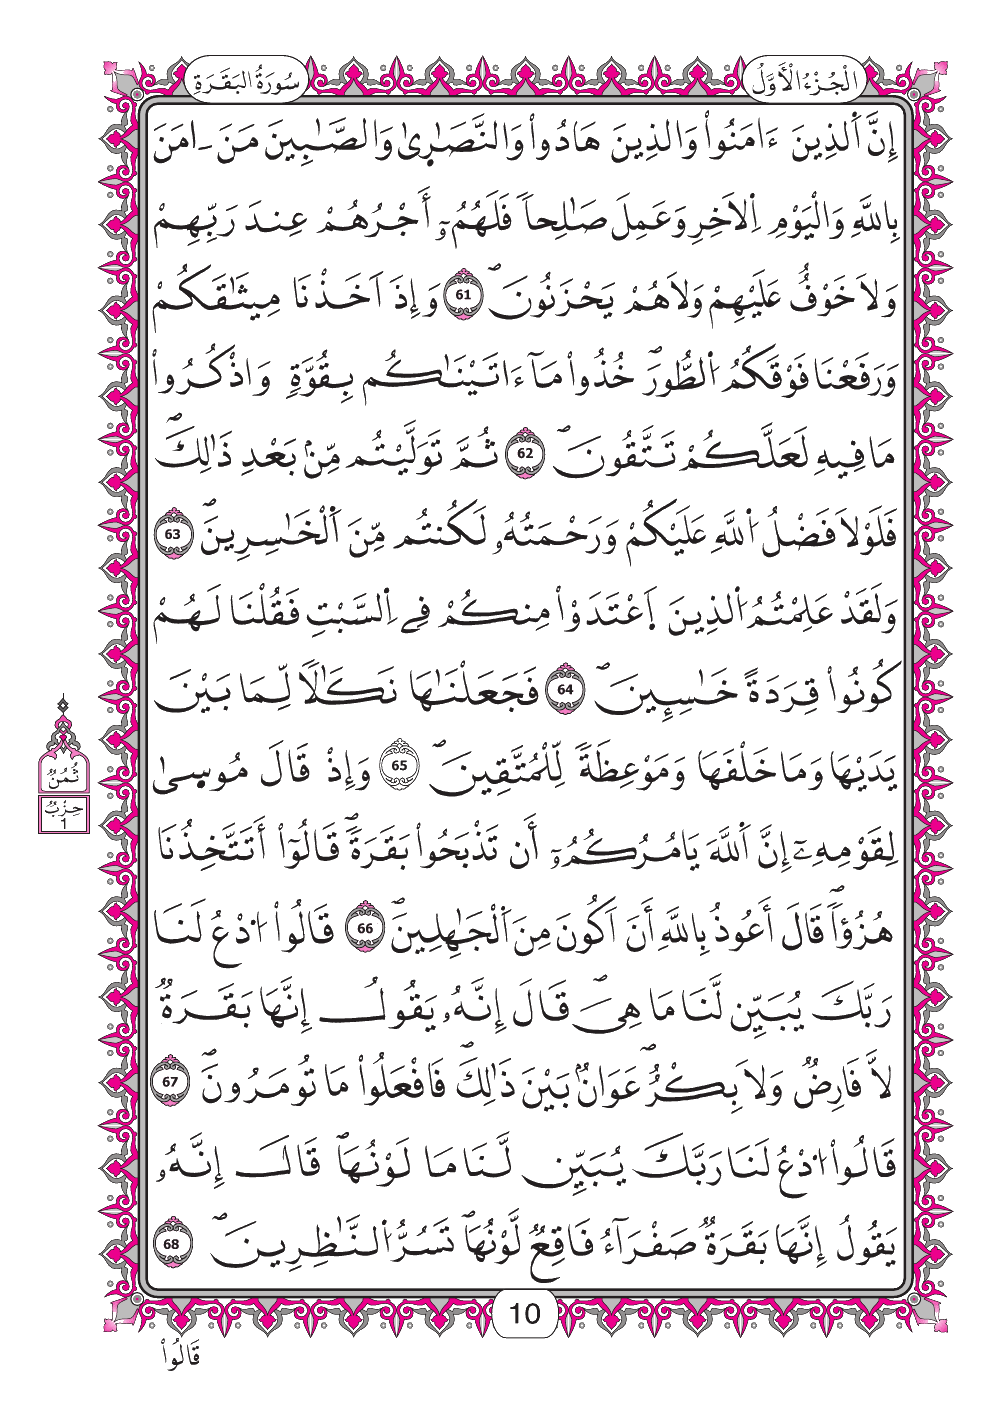 سُورَةُ الْبَقَرَةِ
الْجُزْءُ الْأَوَّلُ
إِنَّ اَ۬لذِينَ ءَامَنُواْ وَالذِينَ هَادُواْ وَالنَّصَٰر۪ىٰ وَالصَّٰبِينَ مَنَ اٰمَنَ
بِاللَّهِ وَالْيَوْمِ اِ۬لَاخِرِ وَعَمِلَ صَٰلِحاٗ فَلَهُمُۥٓ أَجْرُهُمْ عِندَ رَبِّهِمْ
وَلَا خَوْفٌ عَلَيْهِمْ وَلَا هُمْ يَحْزَنُونَۖ 61 وَإِذَ اَخَذْنَا مِيثَٰقَكُمْ
وَرَفَعْنَا فَوْقَكُمُ اُ۬لطُّورَۖ خُذُواْ مَآ ءَاتَيْنَٰكُم بِقُوَّةٖ وَاذْكُرُواْ
مَا فِيهِ لَعَلَّكُمْ تَتَّقُونَۖ 62 ثُمَّ تَوَلَّيْتُم مِّنۢ بَعْدِ ذَٰلِكَۖ
فَلَوْلَا فَضْلُ اُ۬للَّهِ عَلَيْكُمْ وَرَحْمَتُهُۥ لَكُنتُم مِّنَ اَ۬لْخَٰسِرِينَۖ 63
وَلَقَدْ عَلِمْتُمُ اُ۬لذِينَ اَ۪عْتَدَوْاْ مِنكُمْ فِے اِ۬لسَّبْتِ فَقُلْنَا لَهُمْ
كُونُواْ قِرَدَةً خَٰسِـِٕينَۖ 64 فَجَعَلْنَٰهَا نَكَٰلاٗ لِّمَا بَيْنَ
يَدَيْهَا وَمَا خَلْفَهَا وَمَوْعِظَةٗ لِّلْمُتَّقِينَۖ 65 وَإِذْ قَالَ مُوس۪ىٰ
ثُمُنٌ
حِزْبٌ
1
لِقَوْمِهِۦٓ إِنَّ اَ۬للَّهَ يَامُرُكُمُۥٓ أَن تَذْبَحُواْ بَقَرَةٗۖ قَالُوٓاْ أَتَتَّخِذُنَا
هُزُؤاٗۖ قَالَ أَعُوذُ بِاللَّهِ أَنَ اَكُونَ مِنَ اَ۬لْجَٰهِلِينَۖ 66 قَالُواْ اُ۟دْعُ لَنَا
رَبَّكَ يُبَيِّن لَّنَا مَا هِيَۖ قَالَ إِنَّهُۥ يَقُولُ إِنَّهَا بَقَرَةٞ
لَّا فَارِضٞ وَلَا بِكْرٌۖ عَوَانُۢ بَيْنَ ذَٰلِكَۖ فَافْعَلُواْ مَا تُومَرُونَۖ 67
قَالُواْ اُ۟دْعُ لَنَا رَبَّكَ يُبَيِّن لَّنَا مَا لَوْنُهَاۖ قَالَ إِنَّهُۥ
يَقُولُ إِنَّهَا بَقَرَةٞ صَفْرَآءُ فَاقِعٞ لَّوْنُهَاۖ تَسُرُّ اُ۬لنَّٰظِرِينَۖ 68
10
قَالُواْ